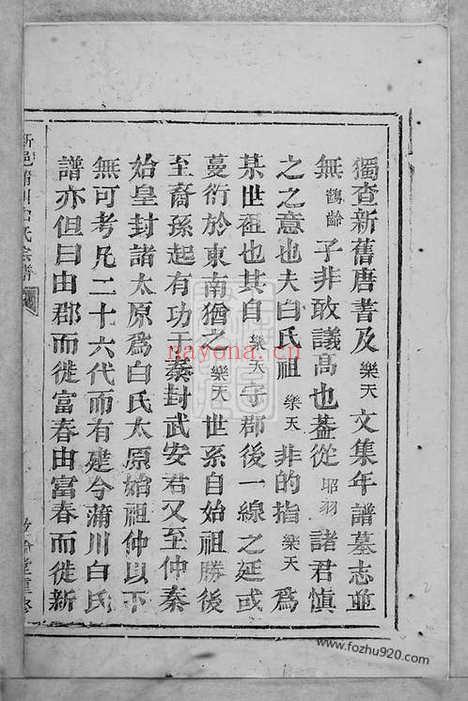 獨查新舊唐書及樂天文集年譜墓志並
無鶴齡子非敢議高也葢從耶羽諸君愼
之之意也夫白氏祖樂天非的指樂天爲
某世祖也其自樂天守郡後一線之延或
蔓衍於東南猶之樂天世系自始祖勝後
至裔孫起有功于秦封武安君又至仲秦
始皇封諸太原爲白氏太原始祖仲以下
無可考凡二十六代而有建今蒲川白氏
譜亦但曰由郡而徙富春由富春而徙新
nayona.cn
www.fozhu920.com